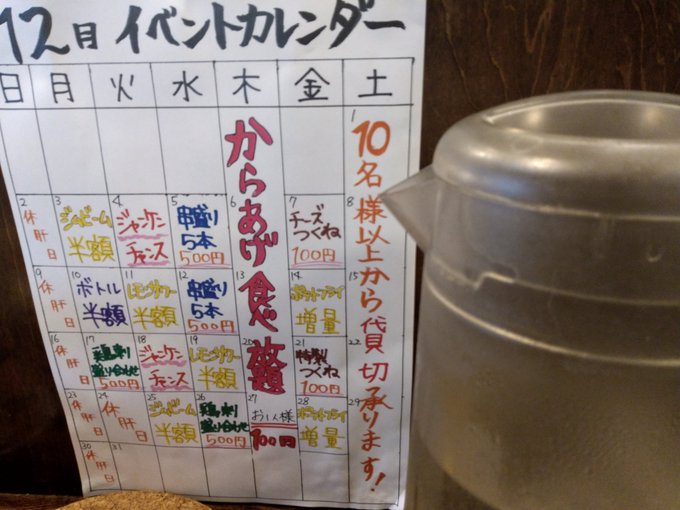 12月 イベントカレンダー
日 月 火 水 木 金 土
1
10名様以上から貸切承ります!
からあげ食べ放題
お1人様
100円
2 休肝日
3 ジムビーム 半額
4 ジャンケン チャンス
5 串盛り 5本 500円
6
7 チーズ つくね 100円
8
9 休肝日
10 ボトル 半額
11 レモンサワー 半額
12 串盛り 5本 500円
13
14 ポテトフライ 増量
15
16 休肝日
17 鶏刺し 盛り合わせ 500円
18 ジャンケン チャンス
19 レモンサワー 半額
20
21 特製 つくね 100円
22
23 休肝日
24 休肝日
25 ジムビーム 半額
26 鶏刺し 盛り合わせ 500円
27
28 ポテトフライ 増量
29
30 休肝日
31